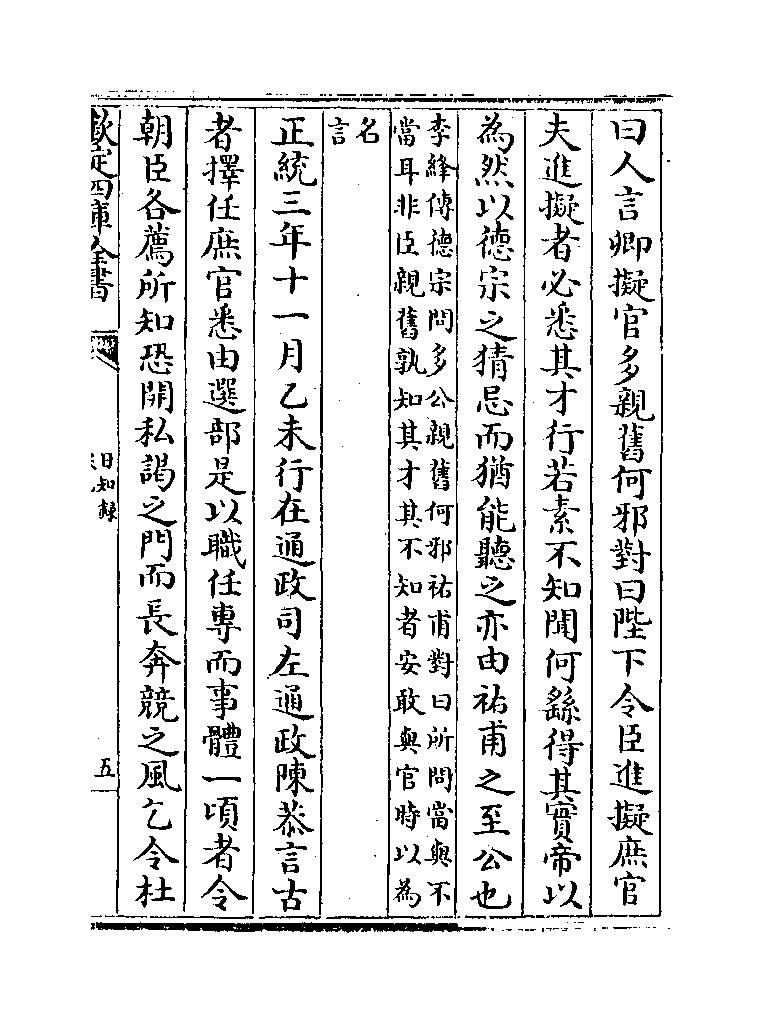 曰人言卿擬官多親舊何邪對曰陛下令臣進擬庶官
夫進擬者必悉其才行若素不知聞何繇得其實帝以
為然以德宗之猜忌而猶能聽之亦由祐甫之至公也
李絳傳德宗問多公親舊何邪祐甫對曰所問當與不
當耳非臣親舊孰知其才其不知者安敢與官時以為
名
言
正統三年十一月乙未行在通政司左通政陳恭言古
者擇任庶官悉由選部是以職任專而事體一頃者令
朝臣各薦所知恐開私謁之門而長奔競之風乞令杜
欽定四庫全書
日知錄
五